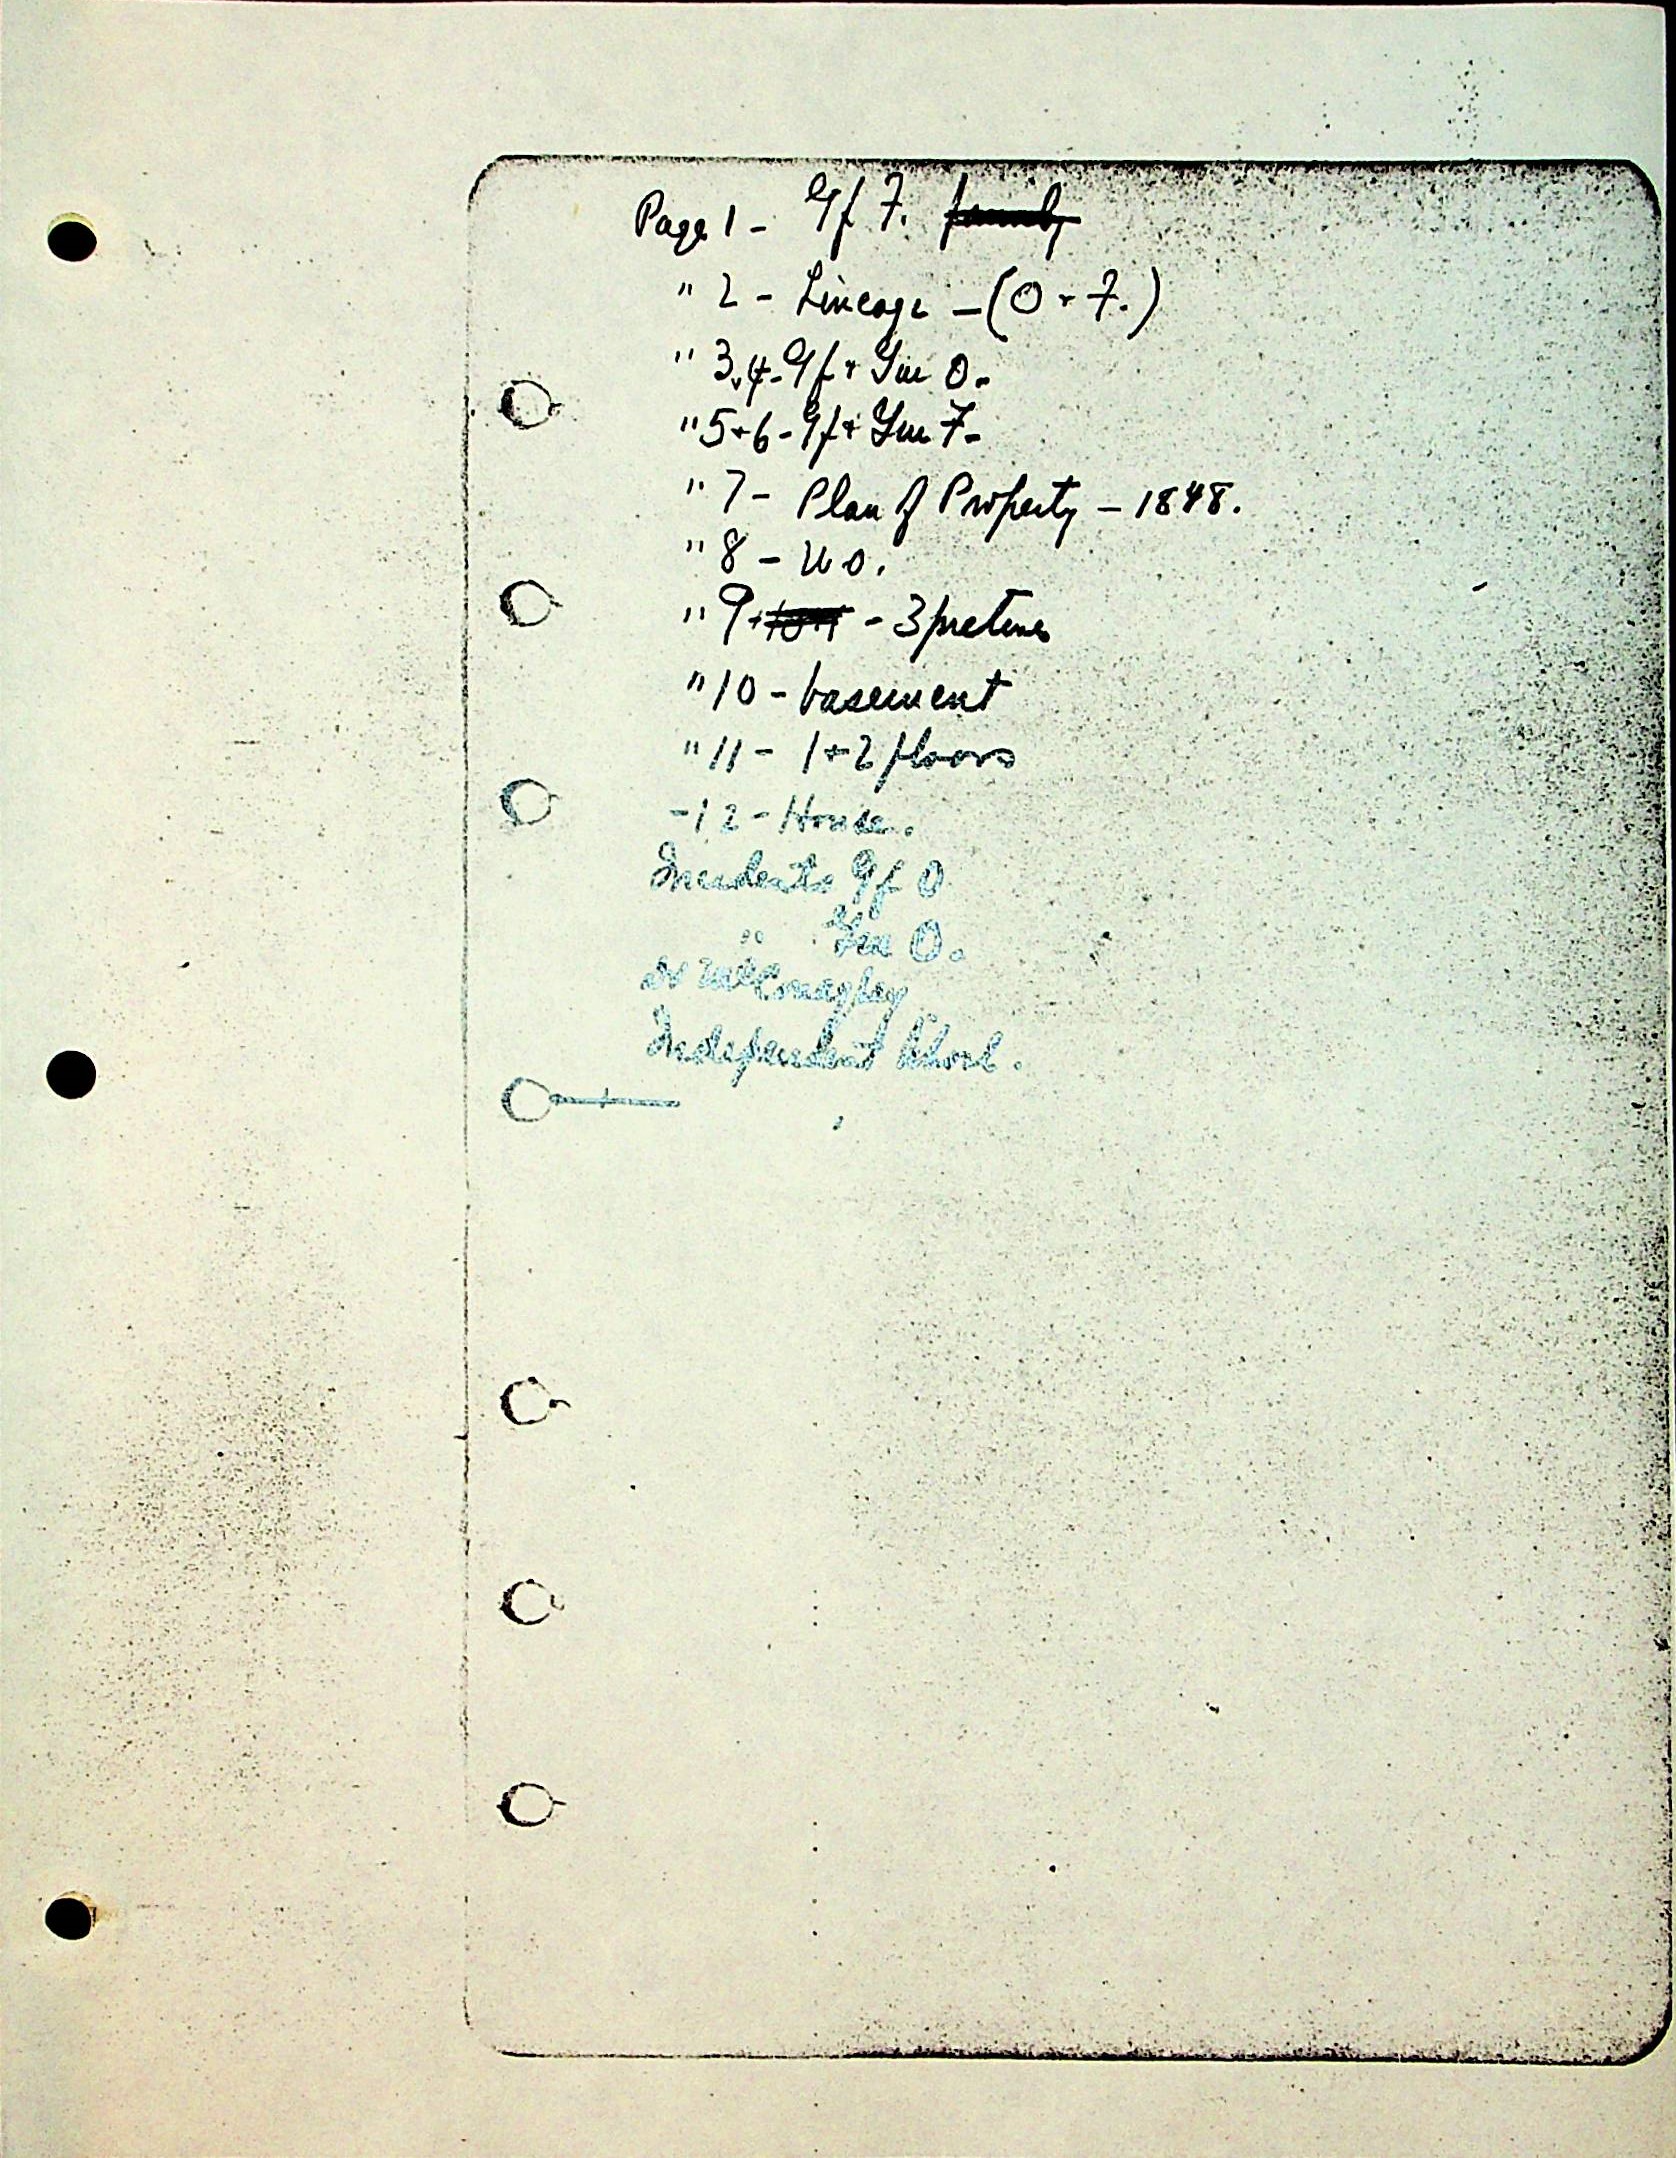 Page 1 - Gf 7. family
" 2 - Lineage - (O + 7.)
" 3,4 - Gf + Gm O.
" 5+6 - Gf + Gm 7 -
" 7 - Plan of Property - 1848.
" 8 - U.O.
" 9 - 3 pictures
" 10 - basement
" 11 - 1+2 floors
- 12 - House.
Incidents Gf O
" Gm O.
Dr McConaghy
Independent School.